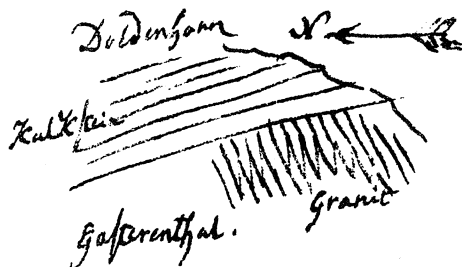 Doldenhorn N
Kalkstein
Granit
Gasterenthal.